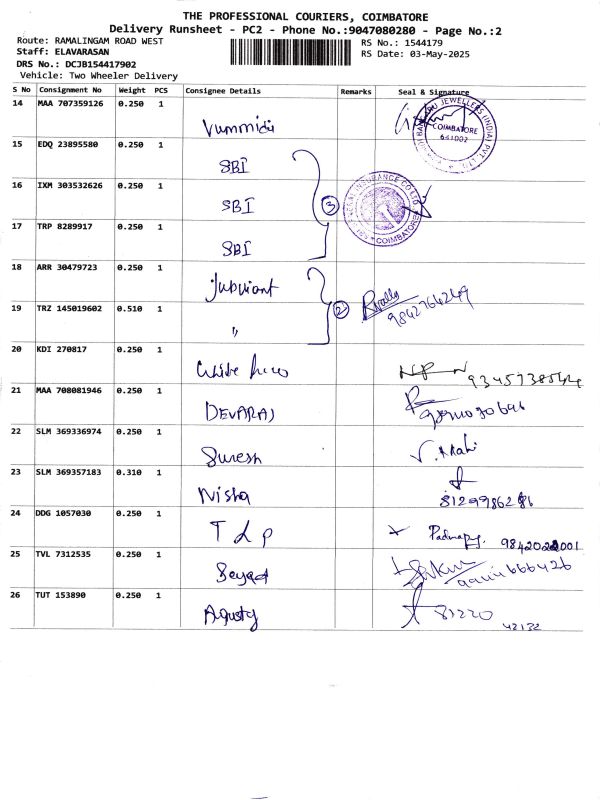 THE PROFESSIONAL COURIERS, COIMBATORE
Delivery Runsheet - PC2 - Phone No.:9047080280 - Page No.:2
Route: RAMALINGAM ROAD WEST
RS No.: 1544179
Staff: ELAVARASAN
RS Date: 03-May-2025
DRS No.: DCJB154417902
Vehicle: Two Wheeler Delivery
S No Consignment No Weight PCS Consignee Details Remarks Seal & Signature
14 MAA 707359126 0.250 1 Vummidi
JEWELLERS (INDIA) PVT. LTD.
COIMBATORE
641002
15 EDQ 23895580 0.250 1 SBI
16 IXM 303532626 0.250 1 SBI 3
INSURANCE CO LTD
COIMBATORE
17 TRP 8289917 0.250 1 SBI
18 ARR 30479723 0.250 1 Jubilant
19 TRZ 145019602 0.510 1 " 2 9842764249
20 KDI 270817 0.250 1 White 9345738544
21 MAA 708081946 0.250 1 DEVARAJ
22 SLM 369336974 0.250 1 Suresh
23 SLM 369357183 0.310 1 Nisha
24 DDG 1057030 0.250 1 TLP
25 TVL 7312535 0.250 1
26 TUT 153890 0.250 1 81220
42132